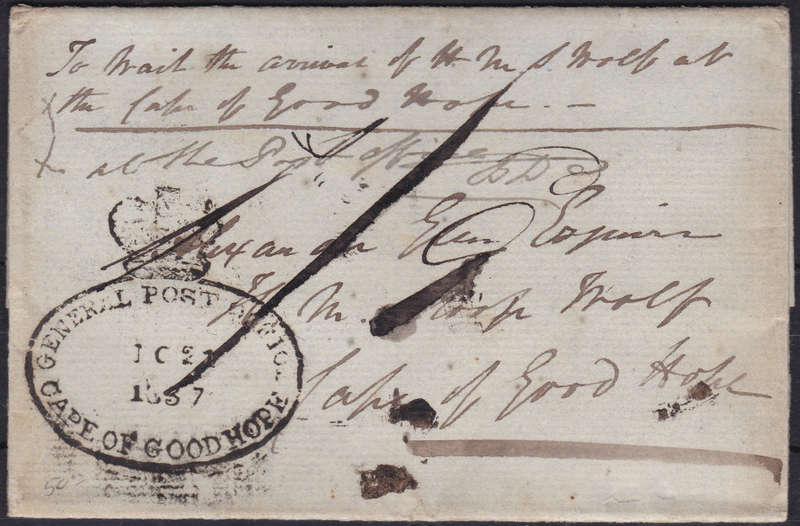 To Wait the arrival of H M S Wolf at
the Cape of Good Hope. —
at the Post office
Alexander Esquire
H M Sloop Wolf
Cape of Good Hope
GENERAL POST OFFICE
1837
CAPE OF GOOD HOPE